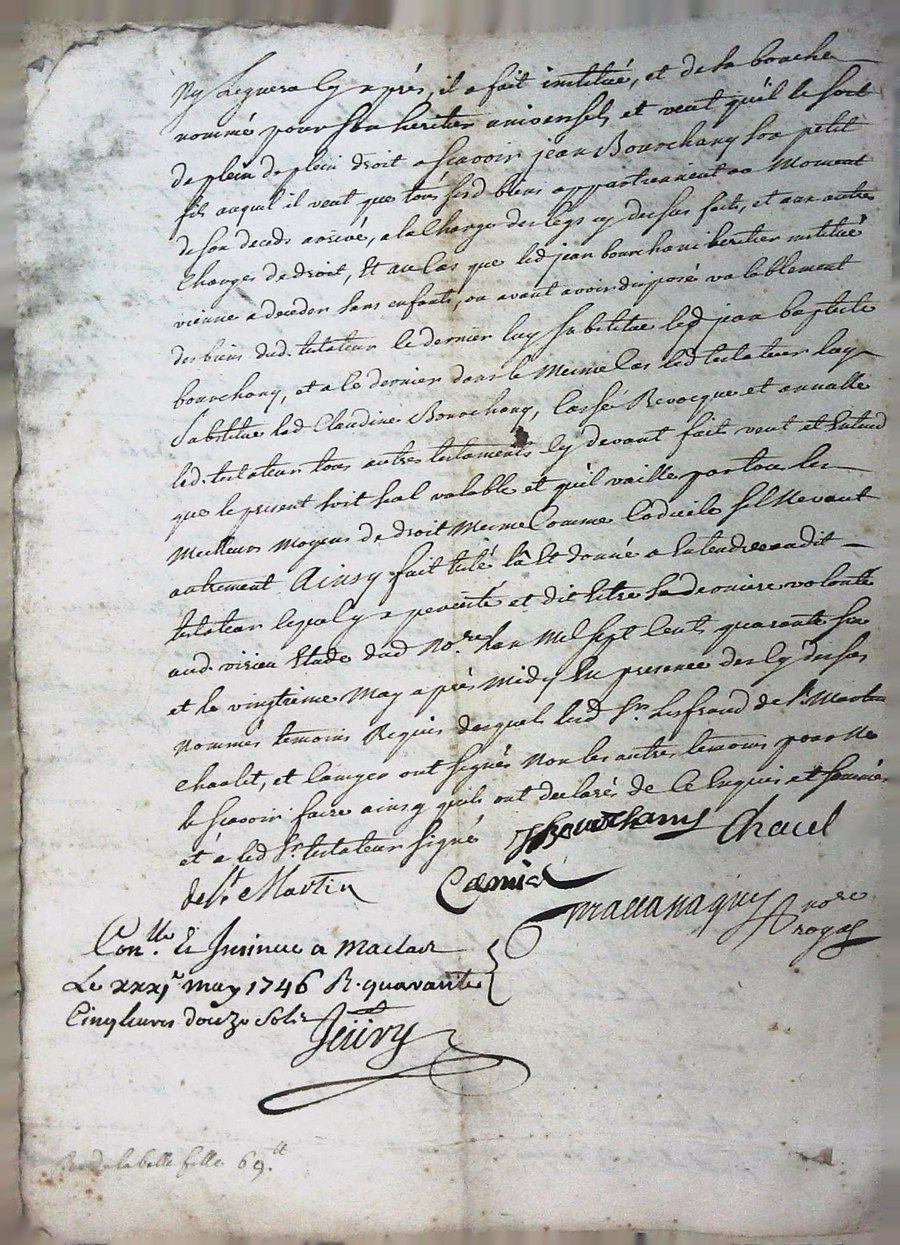 Ny Leguera Cy après, il a fait institué, et de sa bouche
nommé pour son heritier universel, et veut qu'il le soit
de plein de plein droit ascavoir jean Bourchany son petit
fils auquel il veut que tous sesd biens appartiennent au Moment
de son decods arrivé, a la Charge des legs cy dessus faits, et aux autres
Charges de droit, Et au Cas que led jean bourchani heritier institué
vienne a deceder sans enfants, ou avant avoir disposé valablement
des biens dud. testateur le dernier luy substitue led jean baptiste
bourchany, et a le dernier dans le Mesme Cas led testateur luy
Substitue lad Claudine Bourchany, Cassé Revocque et annulle
led. testateur tous autres testaments Cy devant faits veut et Entend
que le present soit seal valable et qu'il vaille par tous les
Meilleurs Moyens de droit Mesme Comme Codicile s'il Ne vaut
autrement Ainsy fait
testateur lequel y a et dit Etre sa derniere volonté
aud. virieu Etude dud No.re L'an Mil sept Cents quarante six
et le vingtième May après Midy En presence des Cy dessus
Nommés temoins Requis desquels led Sr. de St. Martin
et ont signés Non les autres temoins pour Ne
le scavoir faire ainsy qu'ils ont declarés de Ce Enquis et sommés
et a led Sr. testateur signé JBourchany
de St. Martin
no.re
royal
Con.lle & Insinué a Maclas
Le xxxj.e may 1746 R. quarante
Cinq livres douze sols
la belle fille 69.tt